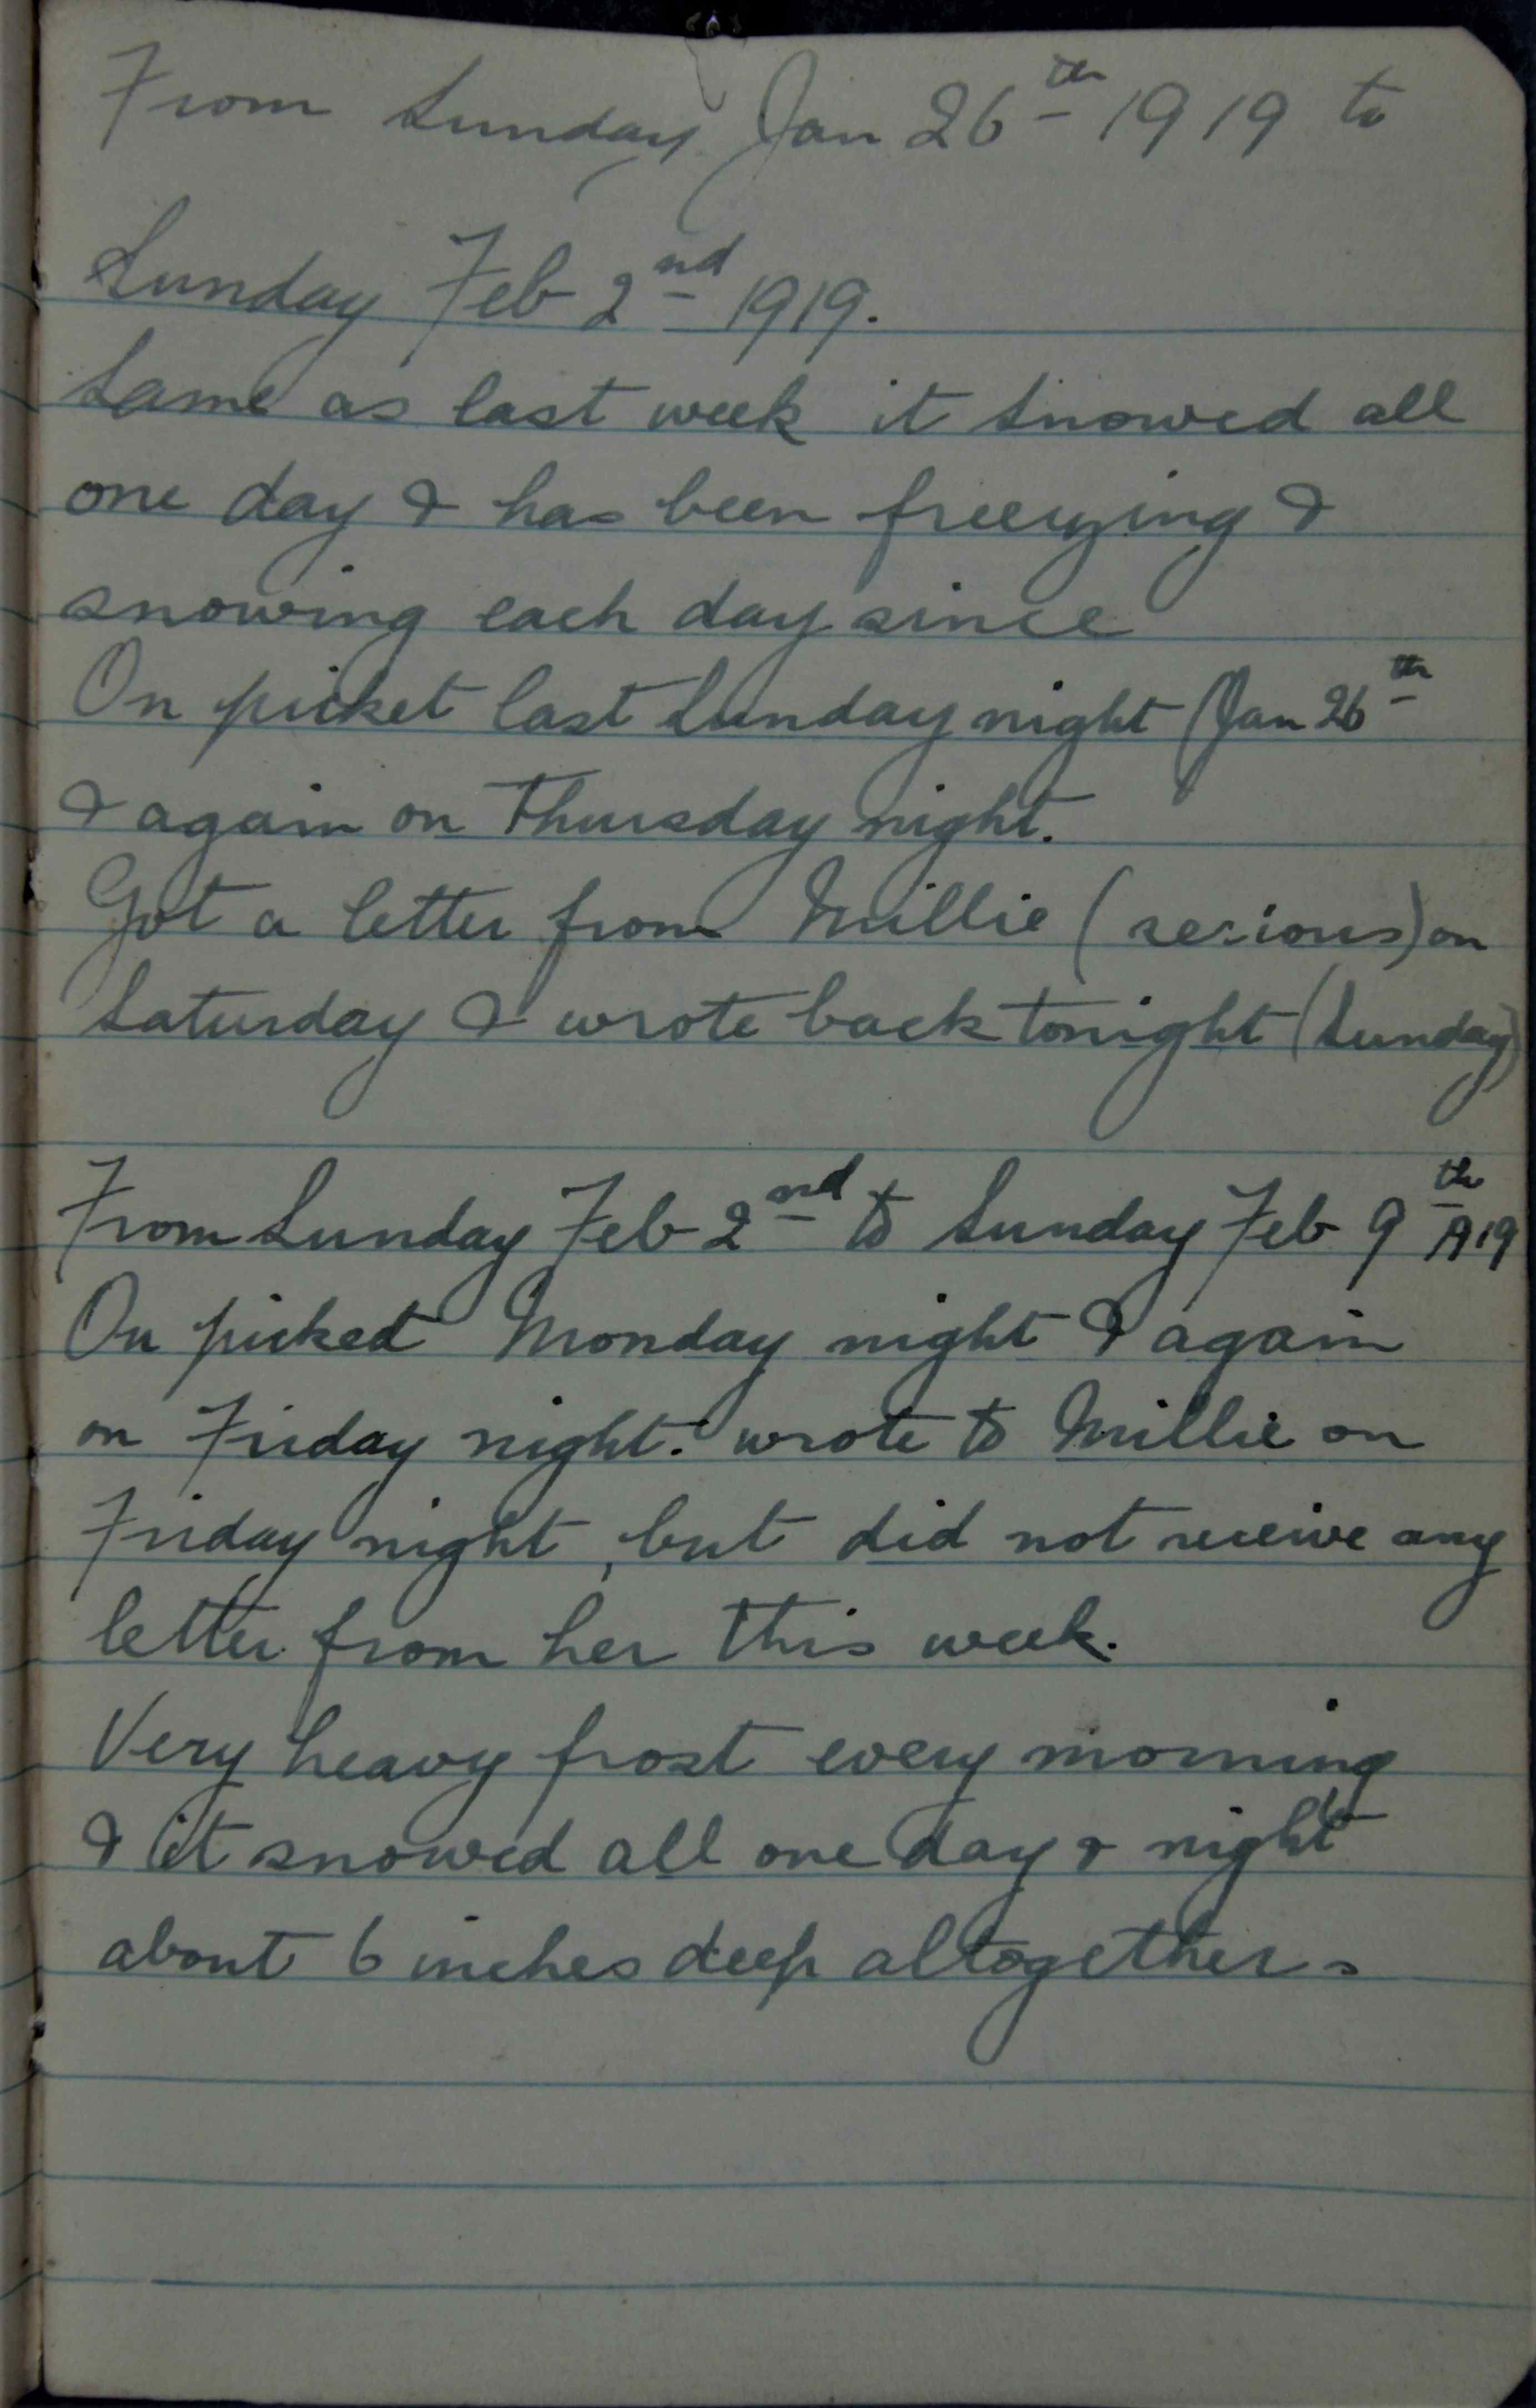 From Sunday Jan 26th 1919 to
Sunday Feb 2nd 1919.
Same as last week it snowed all
one day & has been freezing &
snowing each day since
On picket last Sunday night (Jan 26th
& again on Thursday night.
Got a letter from Millie (serious) on
Saturday & wrote back tonight (Sunday)
From Sunday Feb 2nd to Sunday Feb 9th 1919
On picked Monday night & again
on Friday night. wrote to Millie on
Friday night, but did not receive any
letter from her this week.
Very heavy frost every morning
& it snowed all one day & night
about 6 inches deep altogether.